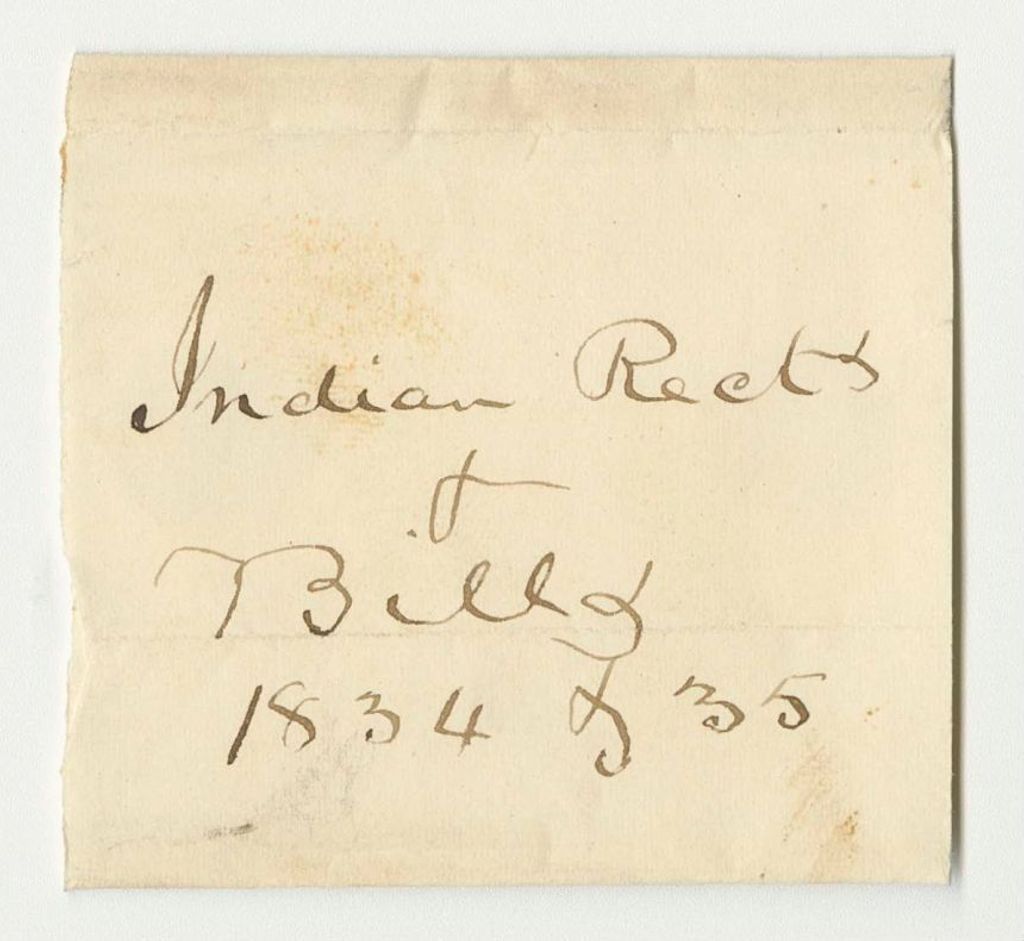 Indian Rects
&
Bills
1834 & 35